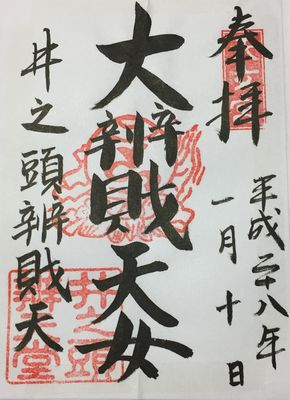 奉拝
平成二十八年
一月十日
大辨財天女
井之頭辨財天
井之頭
辨天堂